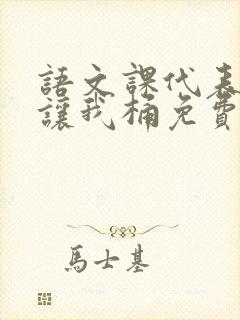 語文課代表
讓我桶免費
馬士基